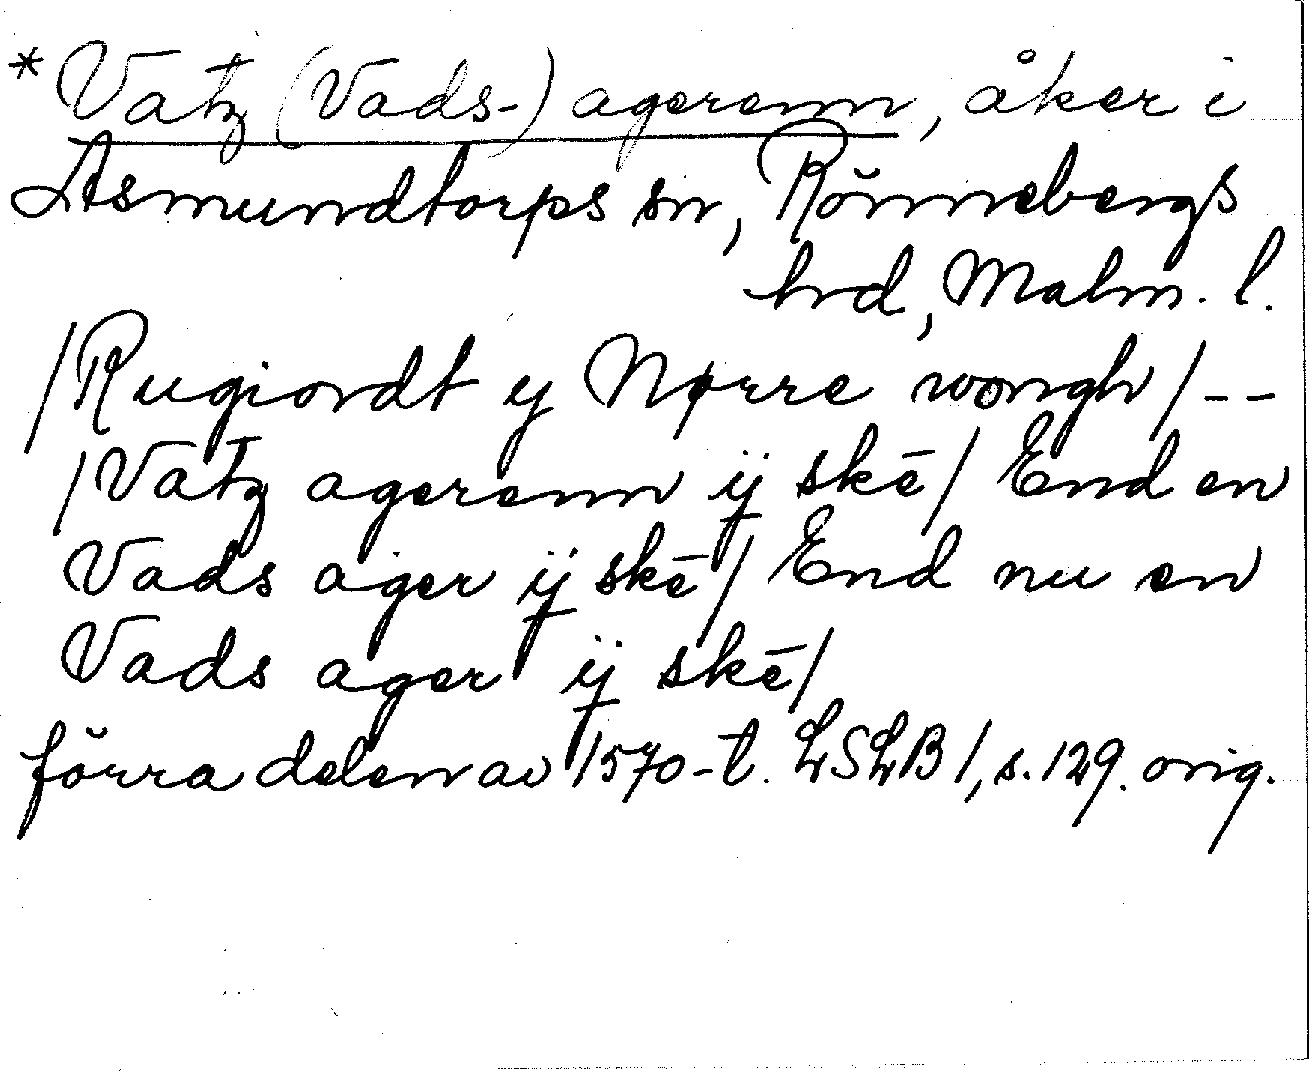 *Vatz (Vads-) agerenn, åker i
Asmundtorps sn, Rönnebergs
hrd, Malm. l.
/Rugiordt y Nørre wongh/--
/Vatz agerenn ij skē/ End en
Vads ager ij skē/ End nu en
Vads ager ij skē/
förra delen av 1570-t. LSLB 1, s. 129. orig.